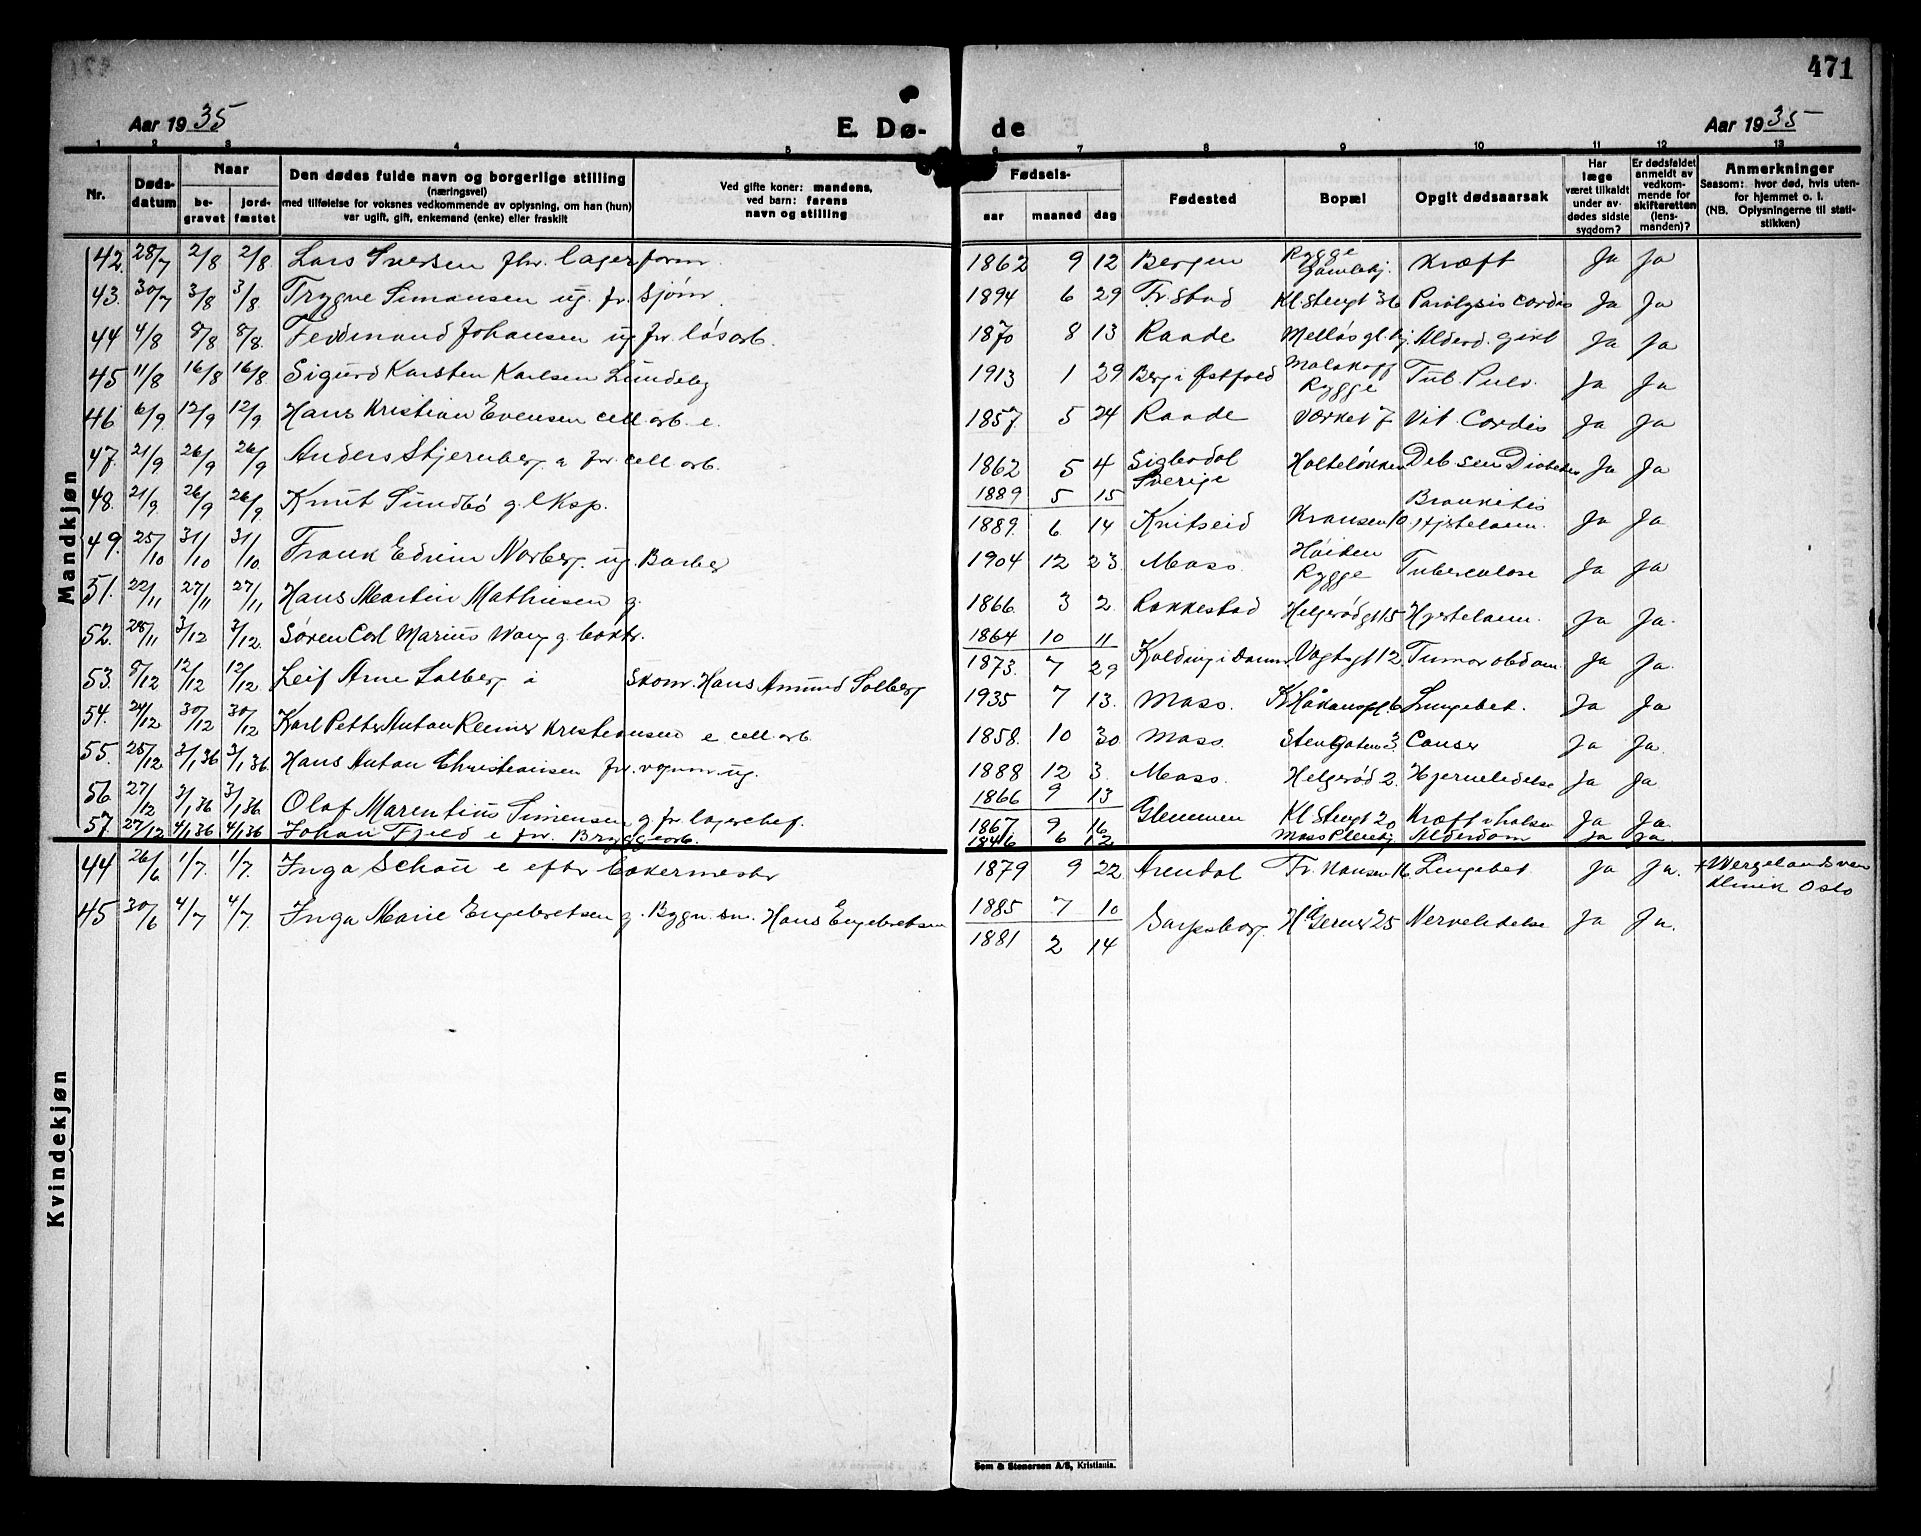 471
Aar 1935
E. Dø-
de
Aar 1935
1 2 3 4 5 6 7 8 9 10 11 12 13
Nr.
Døds-
datum
Naar
be-
gravet
jord-
fæstet
Den dødes fulde navn og borgerlige stilling
(næringsvei)
med tilføielse for voksnes vedkommende av oplysning, om han (hun)
var ugift, gift, enkemand (enke) eller fraskilt
Ved gifte koner: mandens,
ved barn: farens
navn og stilling
Fødsels-
aar
maaned
dag
Fødested
Bopæl
Opgit dødsaarsak
Har
læge
været tilkaldt
under av-
dødes sidste
sygdom?
Er dødsfaldet
anmeldt av
vedkom-
mende for
skifteretten
(lens-
manden)?
Anmerkninger
Saasom: hvor død, hvis uten-
for hjemmet o. l.
(NB. Oplysningerne til stati-
stikken)
Mandkjøn
42. 28/7 2/8 2/8. Lars Iversen fhv. lagerform. 1862 9 12 Bergen Rygge Gamlebj. Kræft Ja Ja
43. 30/7 3/8 3/8. Trygve Simonsen ug. fv. Sjøm. 1894 6 29 Fr.stad Kl. Stengt 36 Paralysis cordis Ja Ja
44 4/8 8/8 8/8. Ferdinand Johansen ug fv. løsarb. 1870 8 13 Raade Melløs gl. hj. Alderd. gikt Ja Ja
45 11/8 16/8 16/8. Sigurd Karsten Karlsen Lundeby 1913 1 29 Berg i Østfold Malakoff Rygge Tub. Pulm. Ja Ja
46 6/9 12/9 12/9 Hans Kristian Evensen cell. arb. e. 1857. 5 24 Raade Værket 7 Vit. Cordis Ja Ja
47. 21/9 26/9 26/9 Anders Stjernberg e fv. cell arb. 1862 5 4 Sverige Holteløkken Deb. sen Diabetes Ja Ja
48. 21/9 26/9 26/9. Knut Sundbö g. Eksp. 1889 5 15
1889. 6. 14 Kviteseid Kransen 10. Bronkitis Hjertelam. Ja Ja
49. 25/10 31/10 31/10. Frank Edvin Norberg. ug. Barber 1904 12 23. Moss. Høiden Rygge Tuberculose Ja Ja
51. 22/11 27/11 27/11 Hans Martin Mathiesen g. 1866. 3 2. Rakkestad Helgerødgt 15 Hjertelam. Ja Ja.
52. 28/11 3/12 3/12. Søren Carl Marius Wang g. boktr. 1864 10 11
1873. 7 29 Kolding i Danm Vogtsgt 12 Tumor abdom. Ja Ja.
53. 8/12 12/12 12/12. Leif Arne Solberg i Skom. Hans Amund Solberg 1935 7 13. Moss. K Håkonspl. 6 Lungebet. Ja Ja
54. 24/12 30/12 30/12 Karl Petter Anton Reinar Kristiansen e cell arb. 1858. 10 30 Moss. Stengaten 3. Cancer Ja Ja.
55. 25/12 3/1 36 3/1 36 Hans Anton Christiansen fv. vognm. ug. 1888 12 3. Moss. Helgerød 2. Hjerneledelse Ja Ja
56. 27/12 3/1 36 3/1 36. Olaf Marentius Simensen g fv. lagerchef. 1866 9 13
1867 9 16 Glemmen Kl. Stengt 20 Kræft i halsen Ja Ja.
57. 27/12 4/1 36 4/1 36 Johan Fjeld e fv. Bryggearb. 1846 6 12 Moss Pleiehj. Alderdom Ja Ja.
Kvindekjøn
44 26/6 1/7. 1/7. Inga Schau e efter bakermester 1879 9 22 Arendal Fr. Nansen 16. Lungebet. Ja Ja. + Wergelandsveien klinik Oslo
45 30/6 4/7 4/7. Inga Marie Engebretsen g. Bygn. sn. Hans Engebretsen 1885 7 10
1881 2 14 Sarpsborg. H. Gerner 25 Nerveledelse Ja Ja.
Sem & Stenersen A/S, Kristiania.